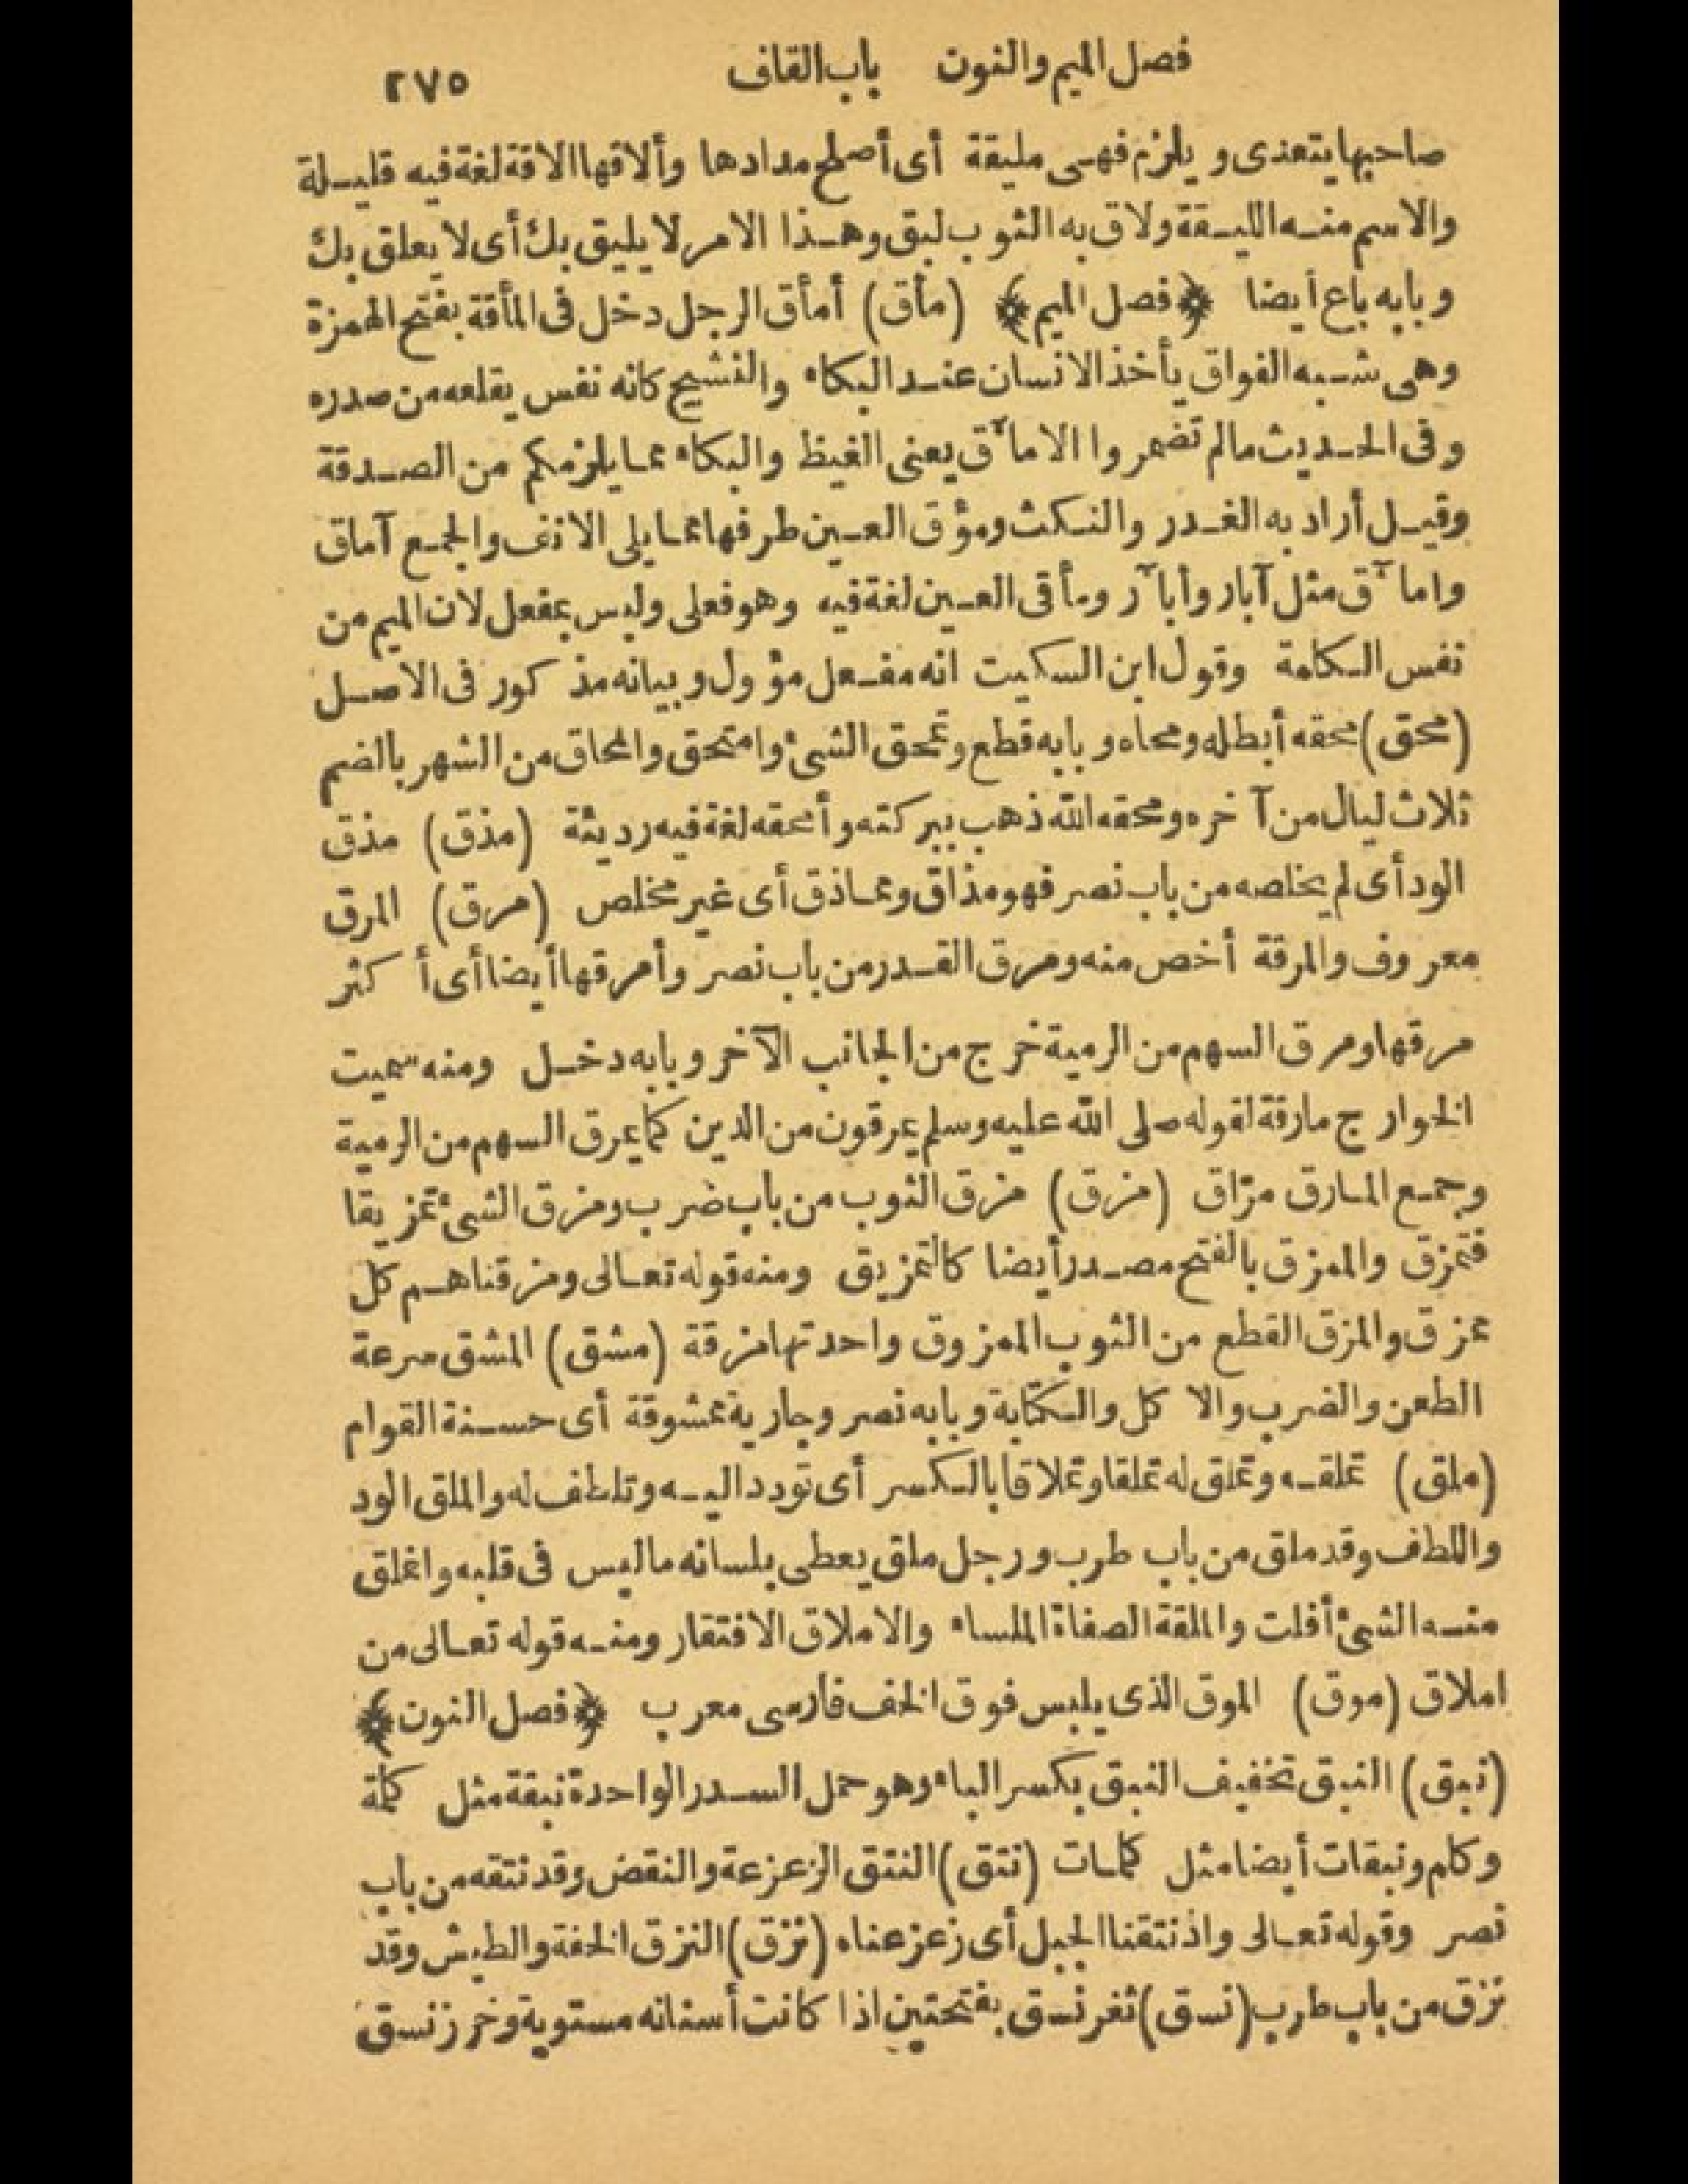 فصل الميم والنون باب القاف ٢٧٥
صاحبها يتعدى ويلزم فهى مليقة أى أصلح مدادها وألاقها الاقة لغة فيه قليلة
والاسم منه الليقة ولاق به الثوب لبق وهذا الامر لا يليق بك أى لا يعلق بك
وبابه باع أيضا ﴿فصل الميم﴾ (مأق) أمأق الرجل دخل فى المأقة بفتح الهمزة
وهى شبه الفواق يأخذ الانسان عند البكاء والنشيج كانه نفس يقلعه من صدره
وفى الحديث مالم تضمروا الاماآق يعنى الغيظ والبكاء مما يلزمكم من الصدقة
وقيل أراد به الغدر والنكث ومؤق العين طرفها مما يلى الانف والجمع آماق
واماآق مثل آبار وأباآر ومأقى العين لغة فيه وهو فعلى وليس بمفعل لان الميم من
نفس الكلمة وقول ابن السكيت انه مفعل مؤول وبيانه مذكور فى الاصل
(محق) محقه أبطله ومحاه وبابه قطع وتمحق الشئ وامتحق والمحاق من الشهر بالضم
ثلاث ليال من آخره ومحقه الله ذهب ببركته وأمحقه لغة فيه رديئة (مذق) مذق
الود أى لم يخلصه من باب نصر فهو مذاق ومماذق أى غير مخلص (مرق) المرق
معروف والمرقة أخص منه ومرق القدر من باب نصر وأمرقها أيضا أى أكثر
مرقها ومرق السهم من الرمية خرج من الجانب الآخر وبابه دخل ومنه سميت
الخوارج مارقة لقوله صلى الله عليه وسلم يمرقون من الدين كما يمرق السهم من الرمية
وجمع المارق مرّاق (مزق) مزق الثوب من باب ضرب ومزق الشئ تمزيقا
فتمزق والممزق بالفتح مصدر أيضا كالتمزيق ومنه قوله تعالى ومزقناهم كل
ممزق والمزق القطع من الثوب الممزوق واحدتها مزقة (مشق) المشق سرعة
الطعن والضرب والاكل والكتابة وبابه نصر وجارية ممشوقة أى حسنة القوام
(ملق) تملقه وتملق له تملقا وتملاقا بالكسر أى تودد اليه وتلطف له والملق الود
واللطف وقد ملق من باب طرب ورجل ملق يعطى بلسانه ماليس فى قلبه وانملق
منه الشئ أفلت والملقة الصفاة الملساء والاملاق الافتقار ومنه قوله تعالى من
املاق (موق) الموق الذى يلبس فوق الخف فارسى معرب ﴿فصل النون﴾
(نبق) النبق تخفيف النبق بكسر الباء وهو حمل السدر الواحدة نبقة مثل كلمة
وكلم ونبقات أيضا مثل كلمات (نتق) النتق الزعزعة والنقض وقد نتقه من باب
نصر وقوله تعالى واذ نتقنا الجبل أى زعزعناه (نزق) النزق الخفة والطيش وقد
نزق من باب طرب (نسق) ثغر نسق بفتحتين اذا كانت أسنانه مستوية وخرز نسق